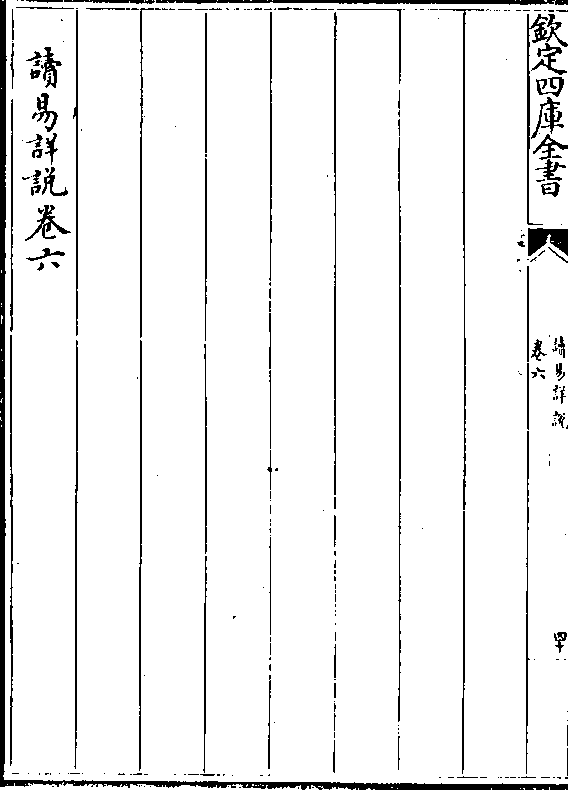 欽定四庫全書
讀易詳説
卷六
四十
讀易詳説卷六